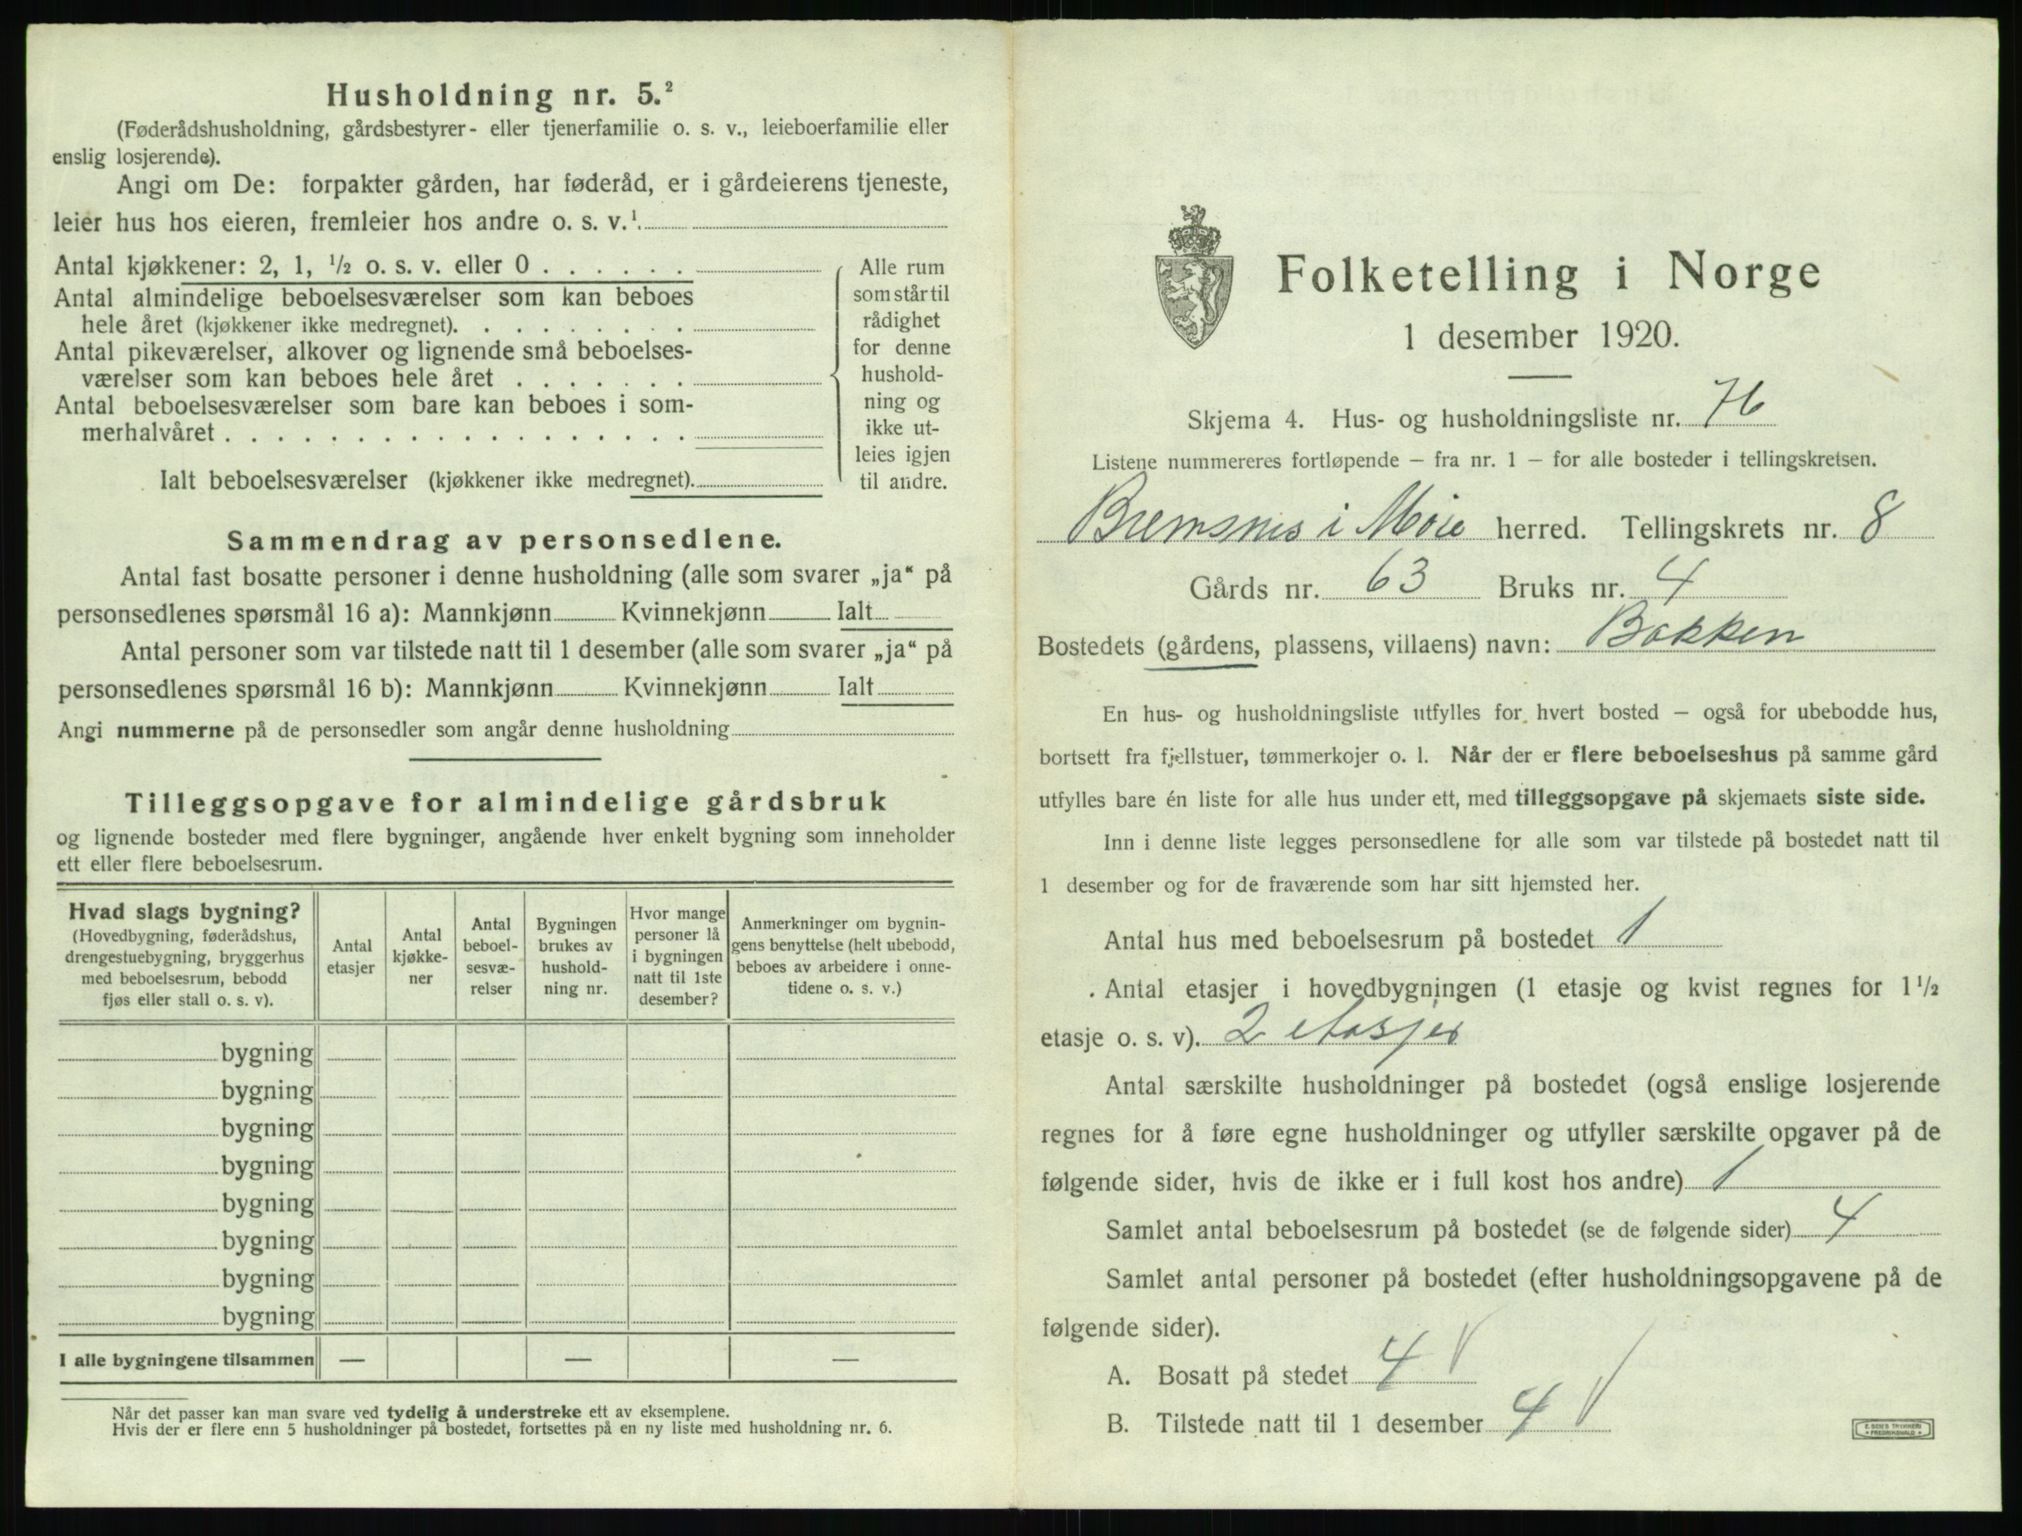 Husholdning nr. 5.²
(Føderådshusholdning, gårdsbestyrer- eller tjenerfamilie o. s. v., leieboerfamilie eller
enslig losjerende).
Angi om De: forpakter gården, har føderåd, er i gårdeierens tjeneste,
leier hus hos eieren, fremleier hos andre o. s. v.¹.
Antal kjøkkener: 2, 1, ½ o. s. v. eller 0 . . . . . .
Antal almindelige beboelsesværelser som kan beboes
hele året (kjøkkener ikke medregnet). . . . . . . . .
Antal pikeværelser, alkover og lignende små beboelses-
værelser som kan beboes hele året . . . . . . .
Antal beboelsesværelser som bare kan beboes i som-
merhalvåret . . . . . . . . . . . . . . . . . .
Ialt beboelsesværelser (kjøkkener ikke medregnet).
Alle rum
som står til
rådighet
for denne
hushold-
ning og
ikke ut-
leies igjen
til andre.
Sammendrag av personsedlene.
Antal fast bosatte personer i denne husholdning (alle som svarer „ja“ på
personsedlenes spørsmål 16 a): Mannkjønn Kvinnekjønn Ialt
Antal personer som var tilstede natt til 1 desember (alle som svarer „ja“ på
personsedlenes spørsmål 16 b): Mannkjønn Kvinnekjønn Ialt
Angi nummerne på de personsedler som angår denne husholdning
Tilleggsopgave for almindelige gårdsbruk
og lignende bosteder med flere bygninger, angående hver enkelt bygning som inneholder
ett eller flere beboelsesrum.
Hvad slags bygning?
(Hovedbygning, føderådshus,
drengestuebygning, bryggerhus
med beboelsesrum, bebodd
fjøs eller stall o. s. v).
Antal
etasjer
Antal
kjøkke-
ner
Antal
beboel-
sesvæ-
relser
Bygningen
brukes av
hushold-
ning nr.
Hvor mange
personer lå
i bygningen
natt til 1ste
desember?
Anmerkninger om bygnin-
gens benyttelse (helt ubebodd,
beboes av arbeidere i onne-
tidene o. s. v.)
bygning
bygning
bygning
bygning
bygning
bygning
bygning
bygning
I alle bygningene tilsammen — — —
Når det passer kan man svare ved tydelig å understreke ett av eksemplene.
Hvis der er flere enn 5 husholdninger på bostedet, fortsettes på en ny liste med husholdning nr. 6.
Folketelling i Norge
1 desember 1920.
Skjema 4. Hus- og husholdningsliste nr. 76
Listene nummereres fortløpende – fra nr. 1 – for alle bosteder i tellingskretsen.
Bremsnes i Møre herred. Tellingskrets nr. 8
Gårds nr. 63 Bruks nr. 4
Bostedets (gårdens, plassens, villaens) navn: Bakken
En hus- og husholdningsliste utfylles for hvert bosted – også for ubebodde hus,
bortsett fra fjellstuer, tømmerkojer o. l. Når der er flere beboelseshus på samme gård
utfylles bare én liste for alle hus under ett, med tilleggsopgave på skjemaets siste side.
Inn i denne liste legges personsedlene for alle som var tilstede på bostedet natt til
1 desember og for de fraværende som har sitt hjemsted her.
Antal hus med beboelsesrum på bostedet 1
Antal etasjer i hovedbygningen (1 etasje og kvist regnes for 1½
etasje o. s. v). 2 etasjer
Antal særskilte husholdninger på bostedet (også enslige losjerende
regnes for å føre egne husholdninger og utfyller særskilte opgaver på de
følgende sider, hvis de ikke er i full kost hos andre) 1
Samlet antal beboelsesrum på bostedet (se de følgende sider) 4
Samlet antal personer på bostedet (efter husholdningsopgavene på de
følgende sider).
A. Bosatt på stedet 4
B. Tilstede natt til 1 desember 4